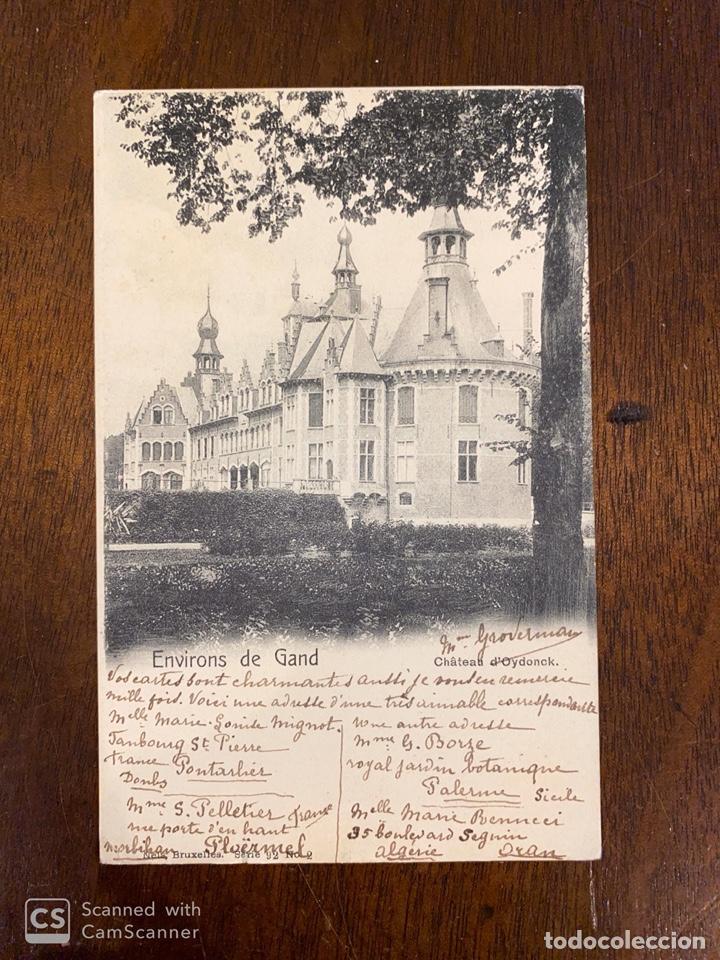 Environs de Gand
Château d'Oydonck.
Mme Groverman
Vos cartes sont charmantes aussi je vous en remercie
mille fois. Voici une adresse d'une très aimable correspondante
Melle Marie-Louise Mignot.
Faubourg St Pierre
france Pontarlier
Doubs
Mme S. Pelletier france
rue porte d'en haut
morbihan Ploërmel
une autre adresse
Mme G. Borze
royal jardin botanique
Palerme Sicile
Melle Marie Bennucci
35 boulevard Seguin
algérie Oran
Nels, Bruxelles. Série 92 No 2
CS Scanned with
CamScanner
todocoleccion